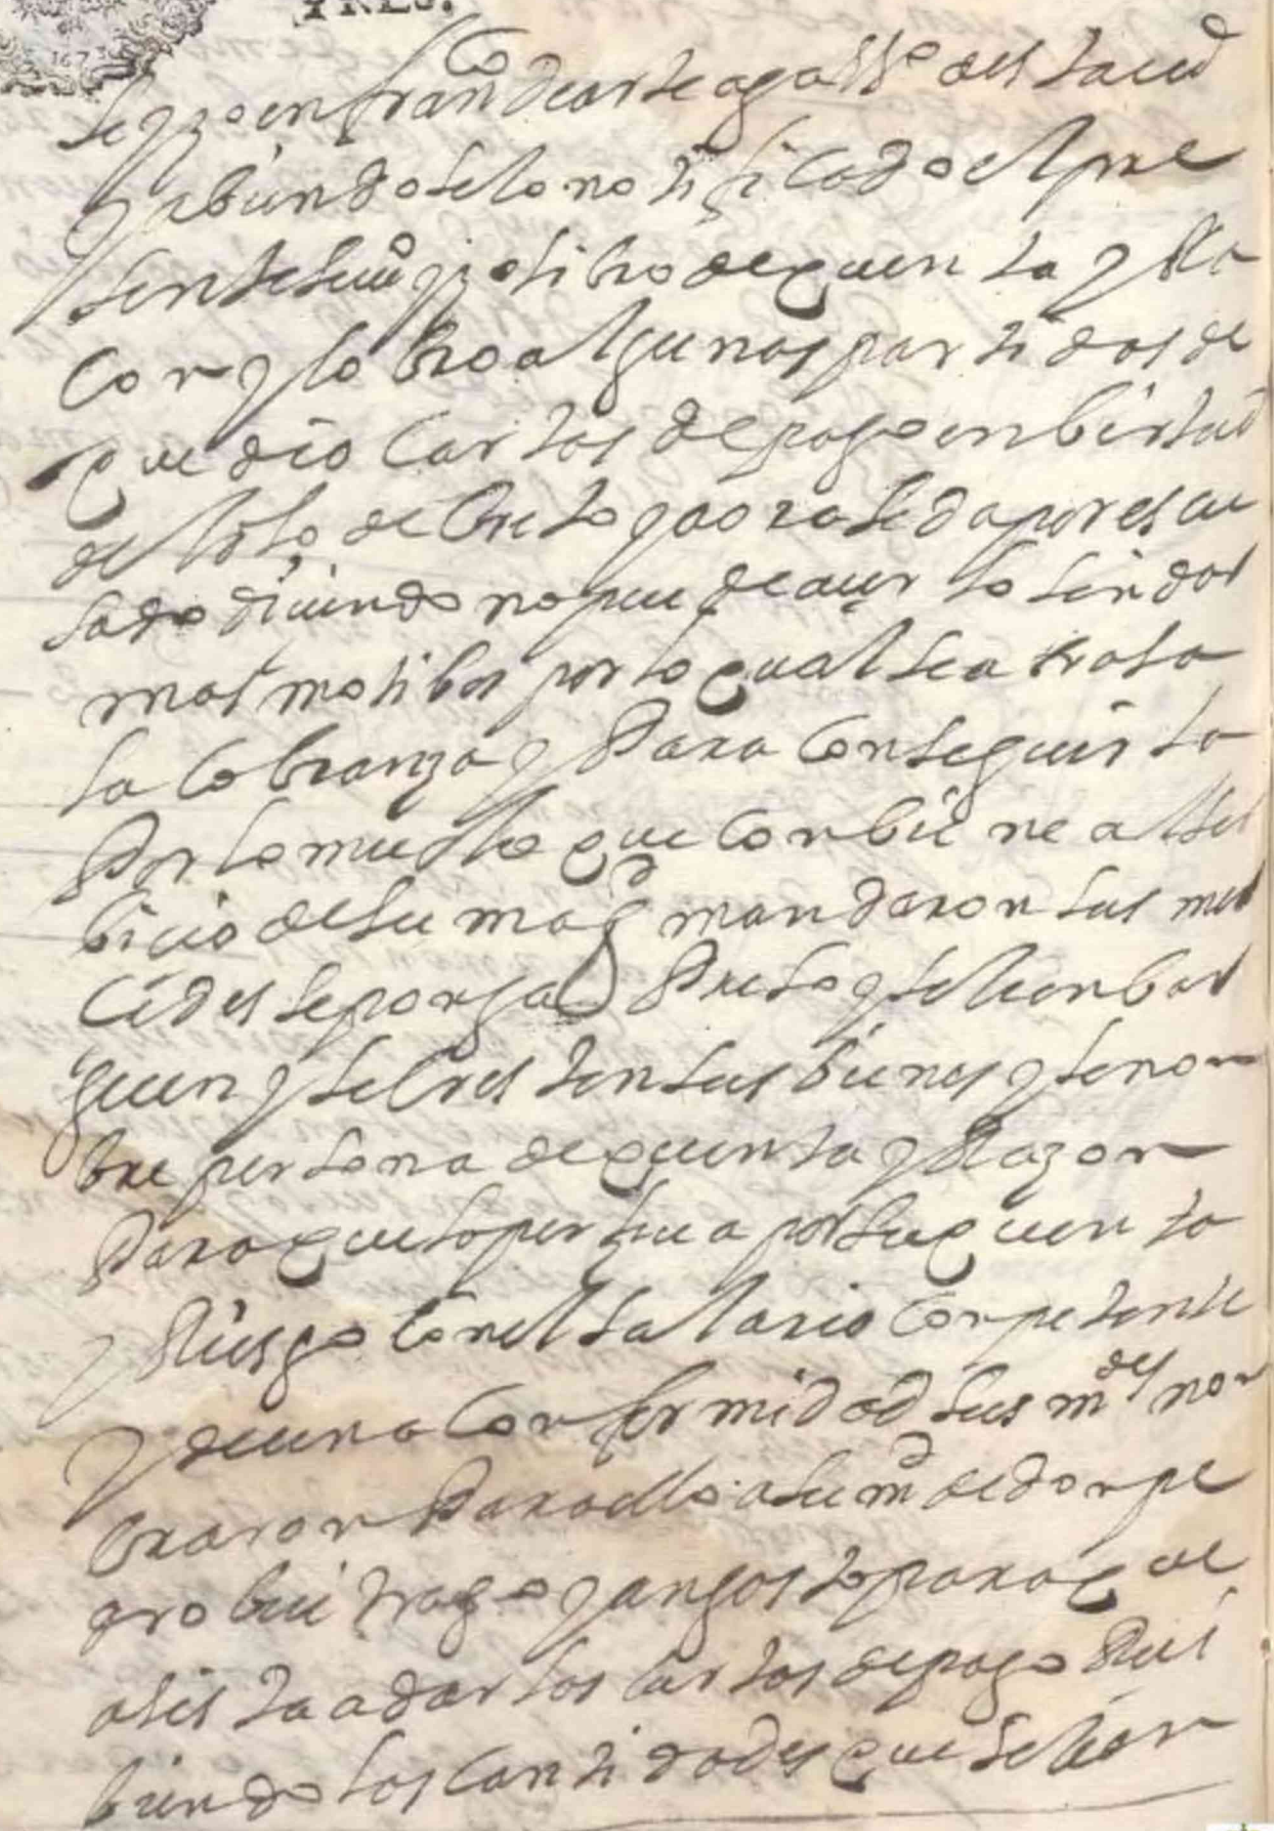 TRES.
1673
se yzo en fran.co de arteaga ss.o desta ciud
y abiendosele notificado el pre
sente su m.d yzo libro de quenta y Ra
con y lobro algunas partidas de
que dio cartas de pago en birtud
del dho decreto y aora se da por escu
sado diciendo no puede acer lo sin dar
mas motibos por lo qual se a trasa
la cobranza y Para conseguirla
Por lo mucho que conbiene al ser
bicio de su mag.d mandaron sus mer
cedes se ponga Preso y se le enbar
guen y secresten sus bienes y se non
bre persona de quenta y Razon
Para que lo persiua por su quenta
y Riesgo con el salario conpetente
y de una conformidad sus m.des non
braron Para ello a su m.d de don pe
dro buitrago y angosto para que
asista a dar las cartas de pago Reci
biendo las cantidades que se